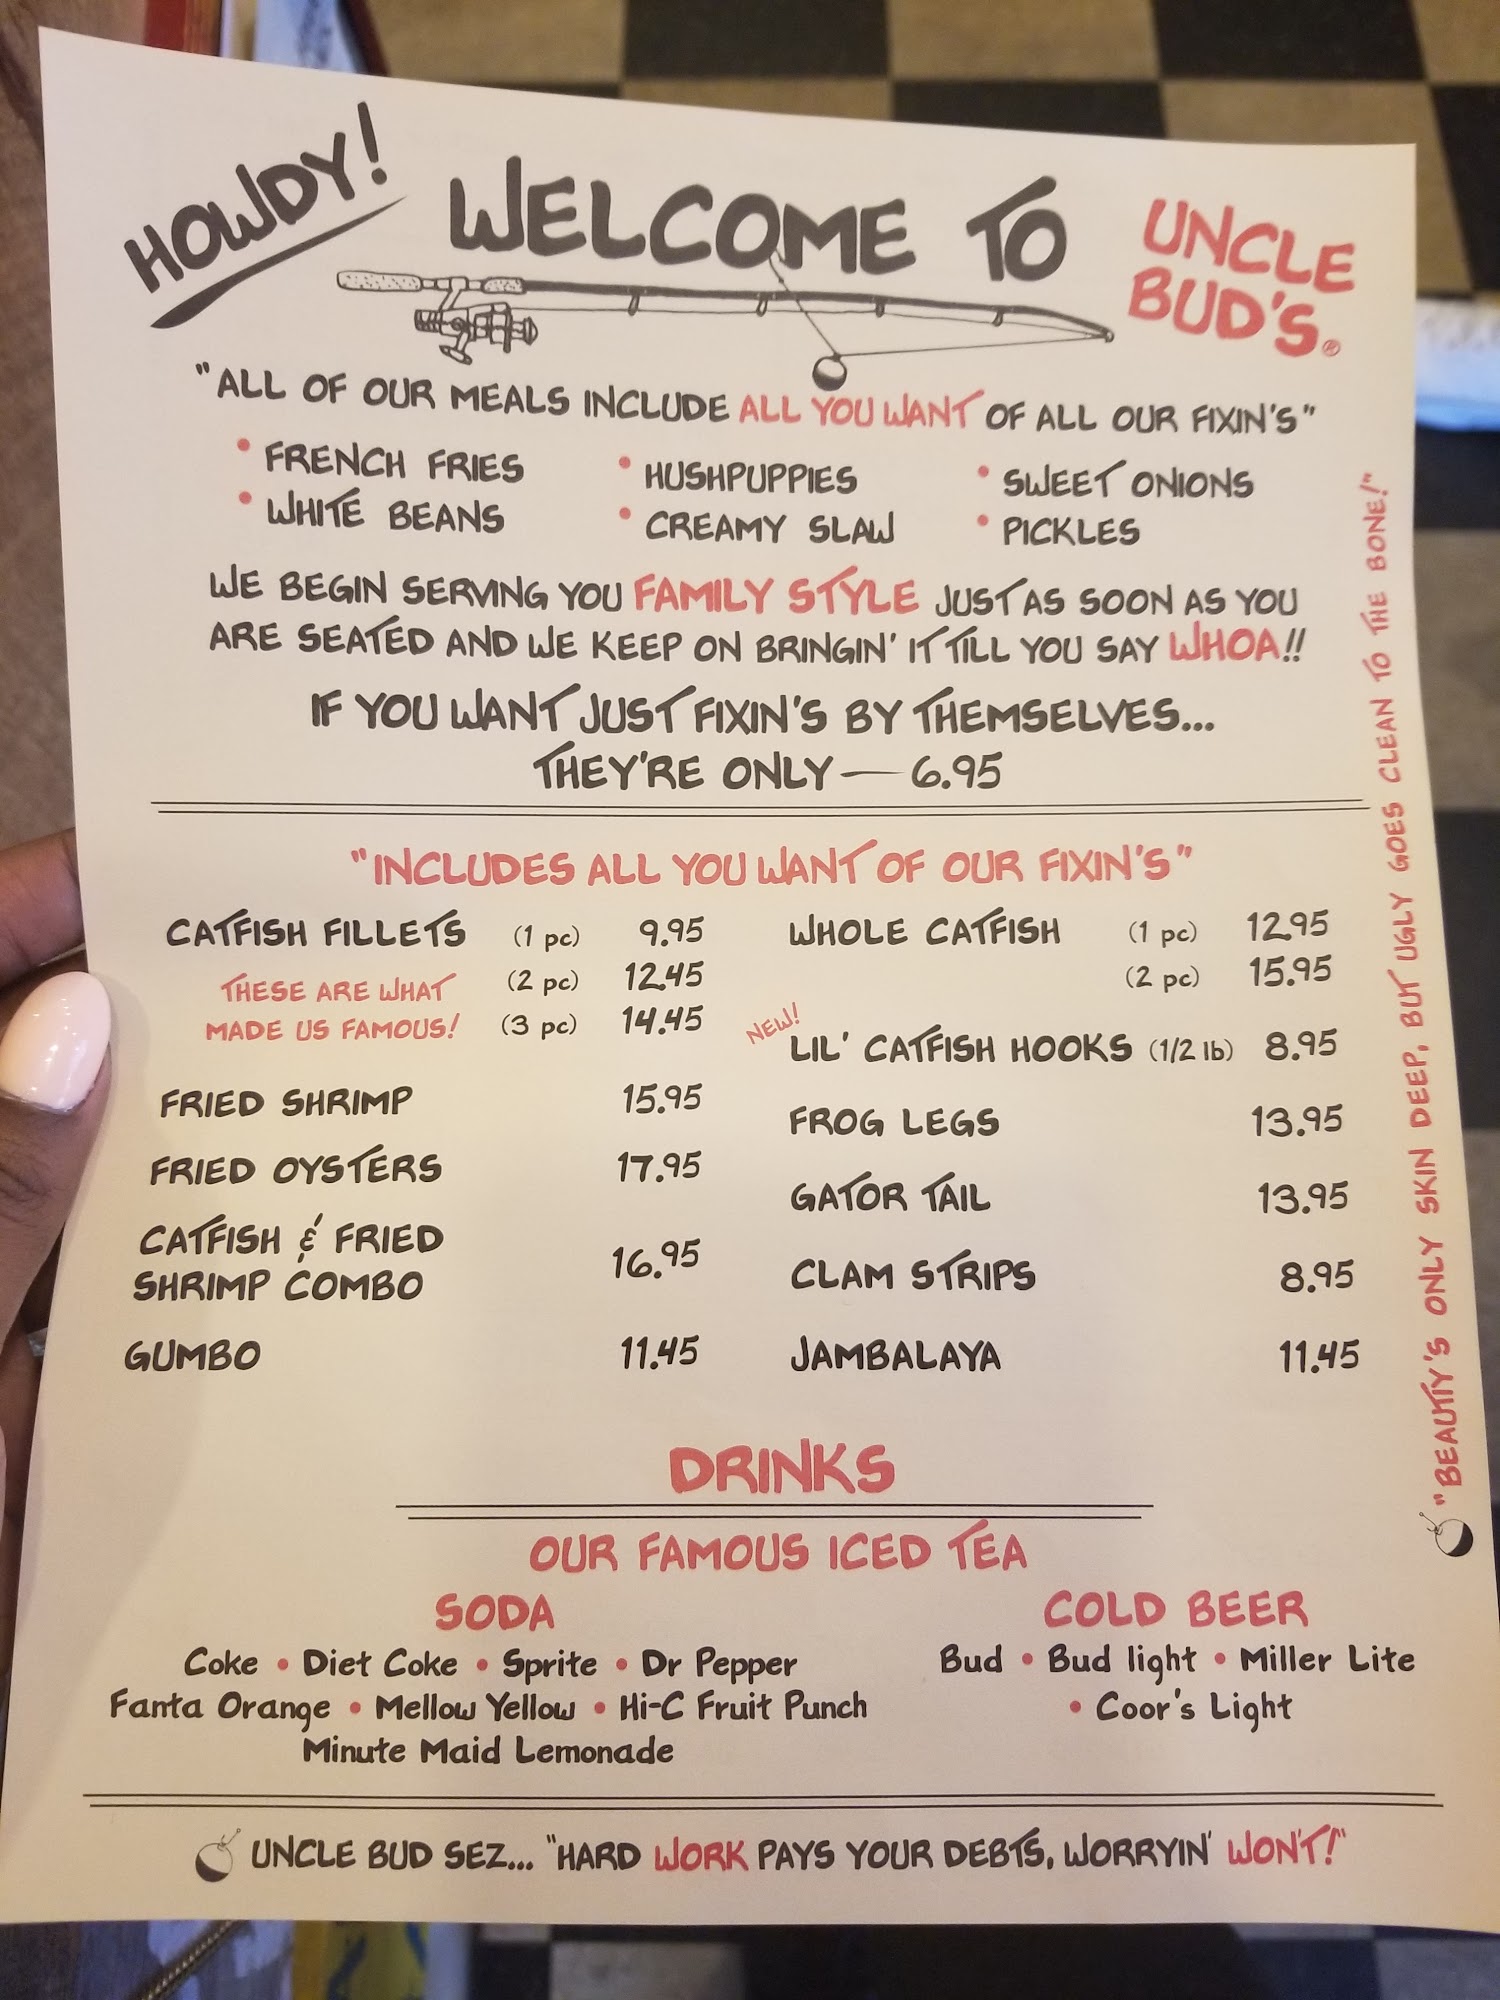 HOWDY!
WELCOME TO
UNCLE
BUD'S®
"ALL OF OUR MEALS INCLUDE ALL YOU WANT OF ALL OUR FIXIN'S"
• FRENCH FRIES • HUSHPUPPIES • SWEET ONIONS
• WHITE BEANS • CREAMY SLAW • PICKLES
WE BEGIN SERVING YOU FAMILY STYLE JUST AS SOON AS YOU
ARE SEATED AND WE KEEP ON BRINGIN' IT TILL YOU SAY WHOA!!
IF YOU WANT JUST FIXIN'S BY THEMSELVES...
THEY'RE ONLY — 6.95
"INCLUDES ALL YOU WANT OF OUR FIXIN'S"
CATFISH FILLETS (1 pc) 9.95
THESE ARE WHAT (2 pc) 12.45
MADE US FAMOUS! (3 pc) 14.45
FRIED SHRIMP 15.95
FRIED OYSTERS 17.95
CATFISH & FRIED
SHRIMP COMBO 16.95
GUMBO 11.45
WHOLE CATFISH (1 pc) 12.95
(2 pc) 15.95
NEW!
LIL' CATFISH HOOKS (1/2 lb) 8.95
FROG LEGS 13.95
GATOR TAIL 13.95
CLAM STRIPS 8.95
JAMBALAYA 11.45
"BEAUTY'S ONLY SKIN DEEP, BUT UGLY GOES CLEAN TO THE BONE!"
DRINKS
OUR FAMOUS ICED TEA
SODA
Coke • Diet Coke • Sprite • Dr Pepper
Fanta Orange • Mellow Yellow • Hi-C Fruit Punch
Minute Maid Lemonade
COLD BEER
Bud • Bud light • Miller Lite
• Coor's Light
UNCLE BUD SEZ... "HARD WORK PAYS YOUR DEBTS, WORRYIN' WON'T!"